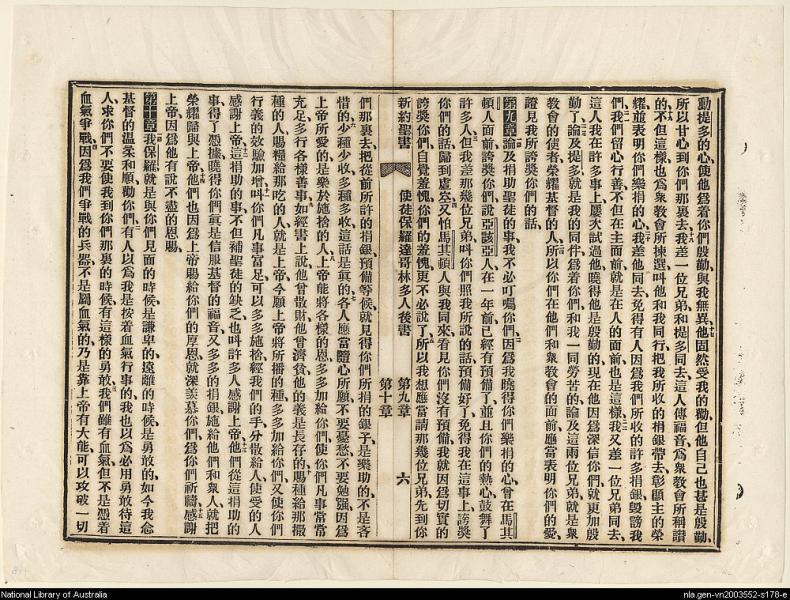 動提多的心使他爲着你們殷勤與我無異他固然受我的勸但他自己也甚是殷勤
所以甘心到你們那裏去我差一位兄弟和提多同去這人傳福音爲衆教會所稱讚
的不但這樣也爲衆教會所揀選叫他和我同行把我所收的捐銀帶去彰顯主的榮
耀並表明你們樂捐的心我差他同去免得有人因爲我們所收的許多捐銀毀謗我
們我留心行善不但在主面前就是在人的面前也是這樣我又差一位兄弟同去
這人我在許多事上屢次試過他曉得他是殷勤的現在他因爲深信你們就更加殷
勤了論及提多就是我的同伴爲着你們和我一同勞苦的論及這兩位兄弟就是衆
教會的使者榮耀基督的人所以你們在他們和衆教會的面前應當表明你們的愛
證見我所誇獎你們的話
第九章論及捐助聖徒的事我不必叮囑你們因爲我曉得你們樂捐的心曾在馬其
頓人面前誇獎你們說亞該亞人在一年前已經有預備了並且你們的熱心鼓舞了
許多人但我差那幾位兄弟叫你們照我所說的話預備好了免得我在這事上誇獎
你們的話歸到虛空又怕馬其頓人與我同來看見你們沒有預備我就因爲切實的
誇獎你們自覺羞愧你們的羞愧更不必說了所以我想應當請那幾位兄弟先到你
新約聖書 使徒保羅達哥林多人後書 第九章 第十章 六
們那裏去把從前所許的捐銀預備等候就見得你們所捐的銀子是樂助的不是吝
惜的少種少收多種多收這話是眞的各人應當隨心所願不要憂愁不要勉强因爲
上帝所愛的是樂於施捨的人上帝能將各樣的恩多多加給你們使你們凡事常常
充足多行各樣善事如經書上說他曾散財他曾濟貧他的義是長存的賜種給那撒
種的人賜糧給那吃的人就是上帝今願上帝將所播的種多多加給你們又使你們
行義的效驗加增叫你們凡事富足可以多多施捨經我們的手分散給人使受的人
感謝上帝這捐助的事不但補聖徒的缺乏也叫許多人感謝上帝他們從這捐助的
事得了憑據曉得你們眞是信服基督的福音又多多的捐銀施給他們和衆人就把
榮耀歸與上帝他們也因爲上帝賜給你們的厚恩就深羨慕你們爲你們祈禱感謝
上帝因爲他有說不盡的恩賜
第十章我保羅就是與你們見面的時候是謙卑的遠離的時候是勇敢的如今我念
基督的溫柔和順勸你們有人以爲我是按着血氣行事的我也以爲必用勇敢待這
人求你們不要使我到你們那裏的時候有這樣的勇敢我們雖有血氣但不是憑着
血氣爭戰因爲我們爭戰的兵器不是屬血氣的乃是靠上帝有大能可以攻破一切
National Library of Australia
nla.gen-vn2003552-s178-e